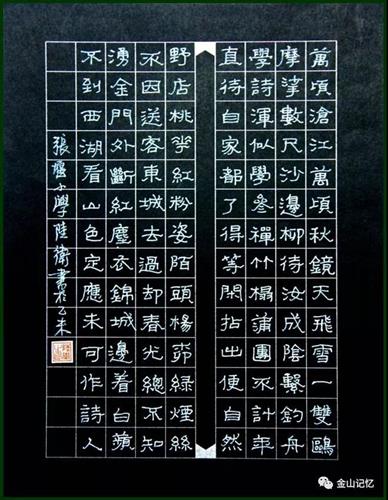 萬頃滄江萬頃秋鏡天飛雪一雙鷗
摩挲數尺沙邊柳待汝成陰繫釣舟
學詩渾似學參禪竹榻蒲團不計年
直待自家都了得等閑拈出便自然
野店桃花紅粉姿陌頭楊柳綠煙絲
不因送客東城去過却春光總不知
湧金門外斷紅塵衣錦城邊着白蘋
不到西湖看山色定應未可作詩人
張堰小學陸衛書於乙未
金山记忆